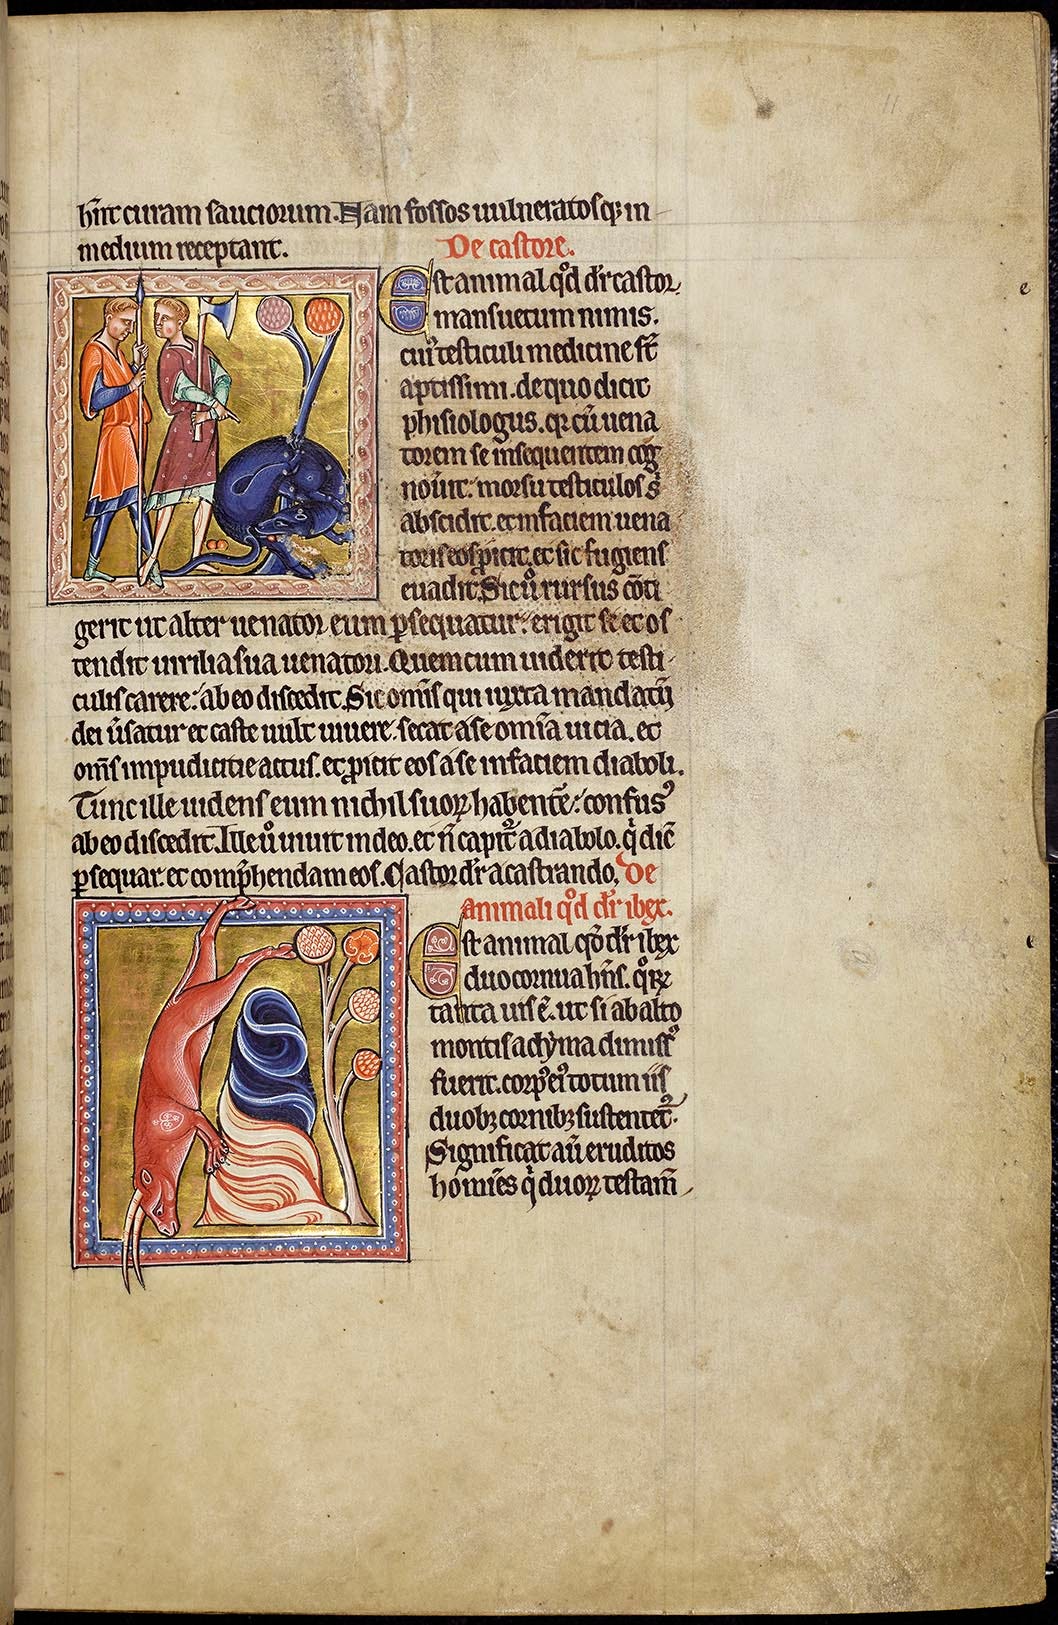 11
hn̄t curam sauciorum. Nam fossos uulneratosq; in
medium receptant. De castore.
Est animal qd̕ dr̄ castor.
mansuetum nimis.
cui᾽ testiculi medicine st̄
aptissimi. de quo dicit
phisiologus. qr cū uena
torem se insequentem cog
nouit: morsu testiculos s̕
abscidit. et in faciem uena
toris eos ꝓicit. et sic fugiens
euadit. Si u̕o rursus cōti
gerit ut alter uenator eum ꝑsequatur: erigit se et os
tendit uirilia sua uenatori. Quem cum uiderit testi
culis carere: ab eo discedit. Sic om̄is qui iuxta mandatū
dei u̕satur et caste uult uiuere. secat a se om̄ia uicia. et
om̄s impudicitie actus. et ꝓicit eos a se in faciem diaboli.
Tunc ille uidens eum nichil suoꝝ habentē: confus᾽
ab eo discedit. Ille u̕o uiuit in deo. et n̄ capit᾽ a diabolo. q̕ dic̄
ꝑsequar. et comp̕hendam eos. Castor dr̄ a castrando. De
animali qd̕ dr̄ ibex.
Est animal qd̕ dr̄ ibex
duo cornua hn̄s. quoꝝ
tanta uis ē. ut si ab alto
montis ad yma dimiss᾽
fuerit. corp᾽ ei᾽ totum iis
duob; cornib; sustentet᾽.
Significat aū eruditos
homīes q̕ duoꝝ testam̄
e
e